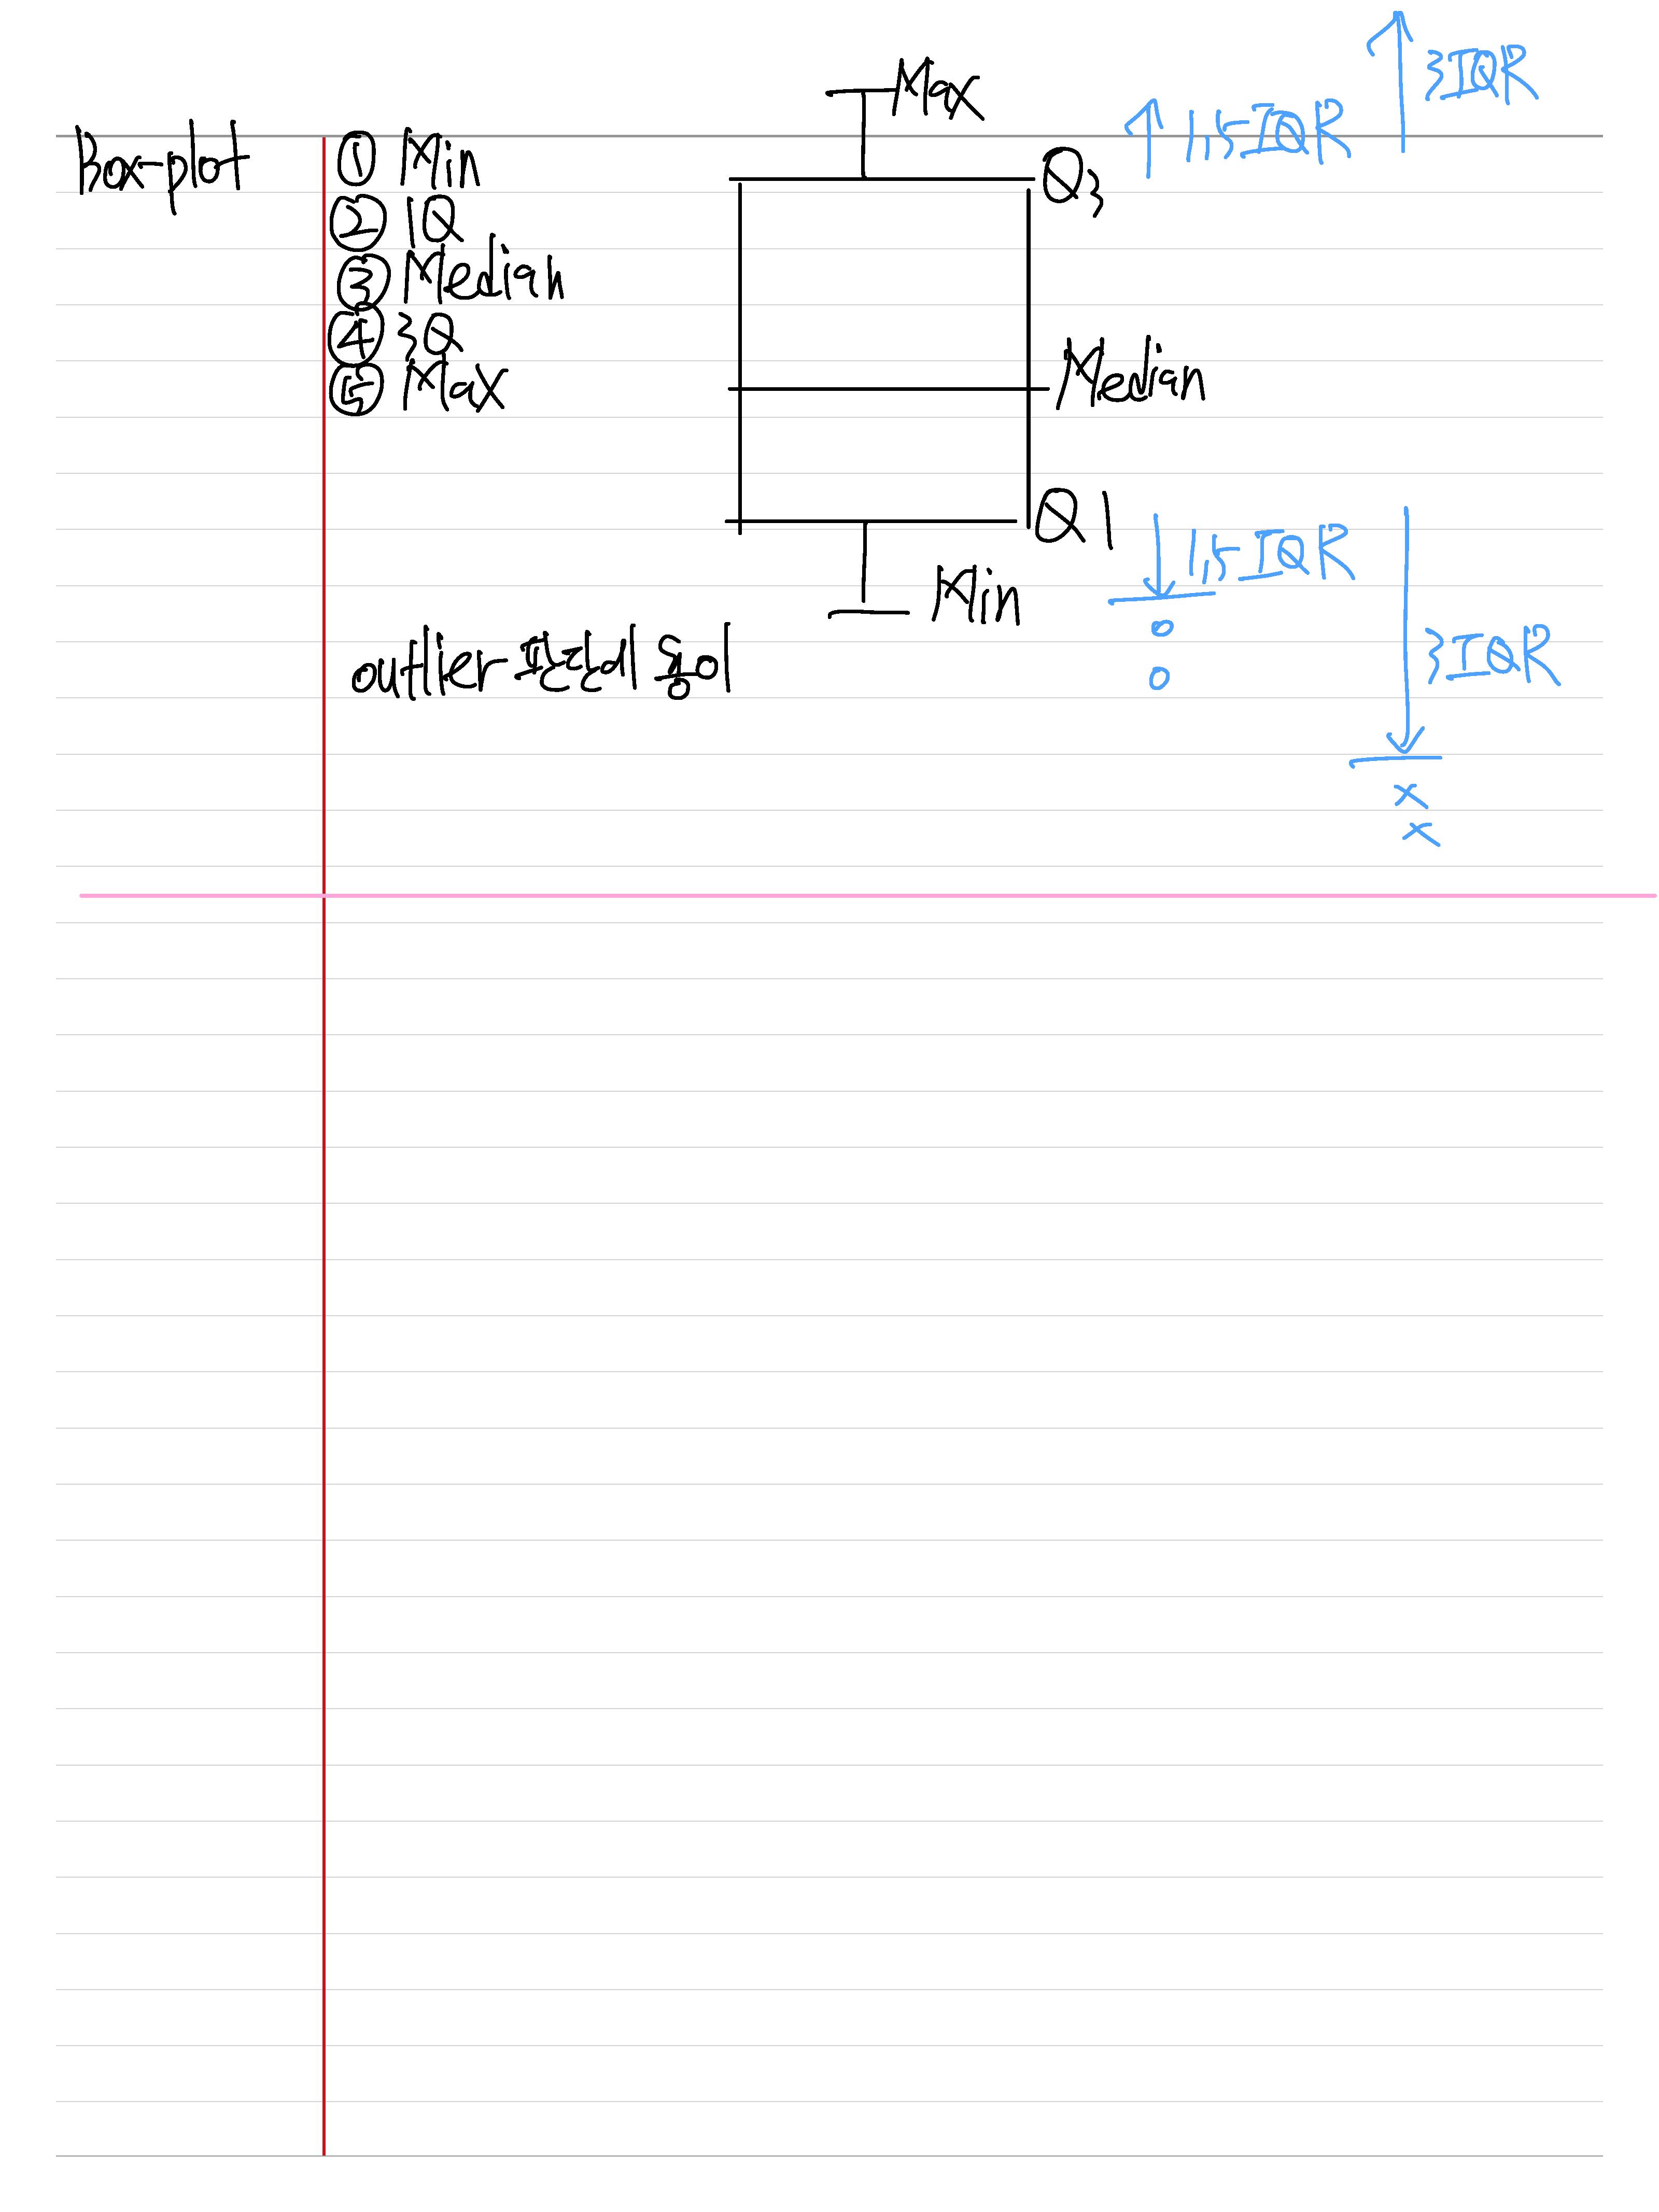 Box-plot
① Min
② 1Q
③ Median
④ 3Q
⑤ Max
outlier 판단에 용이
Max
Q3
Median
Q1
Min
↑ 1,5 IQR
↑ 3IQR
↓ 1,5 IQR
o
o
↓ 3IQR
x
x